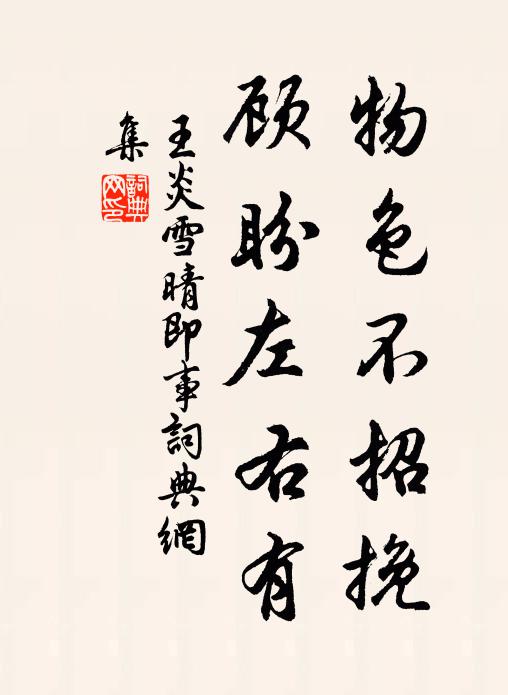 物色不招挽
顾盼左右有
王炎雪晴即事詞典網
集
詞典
网印